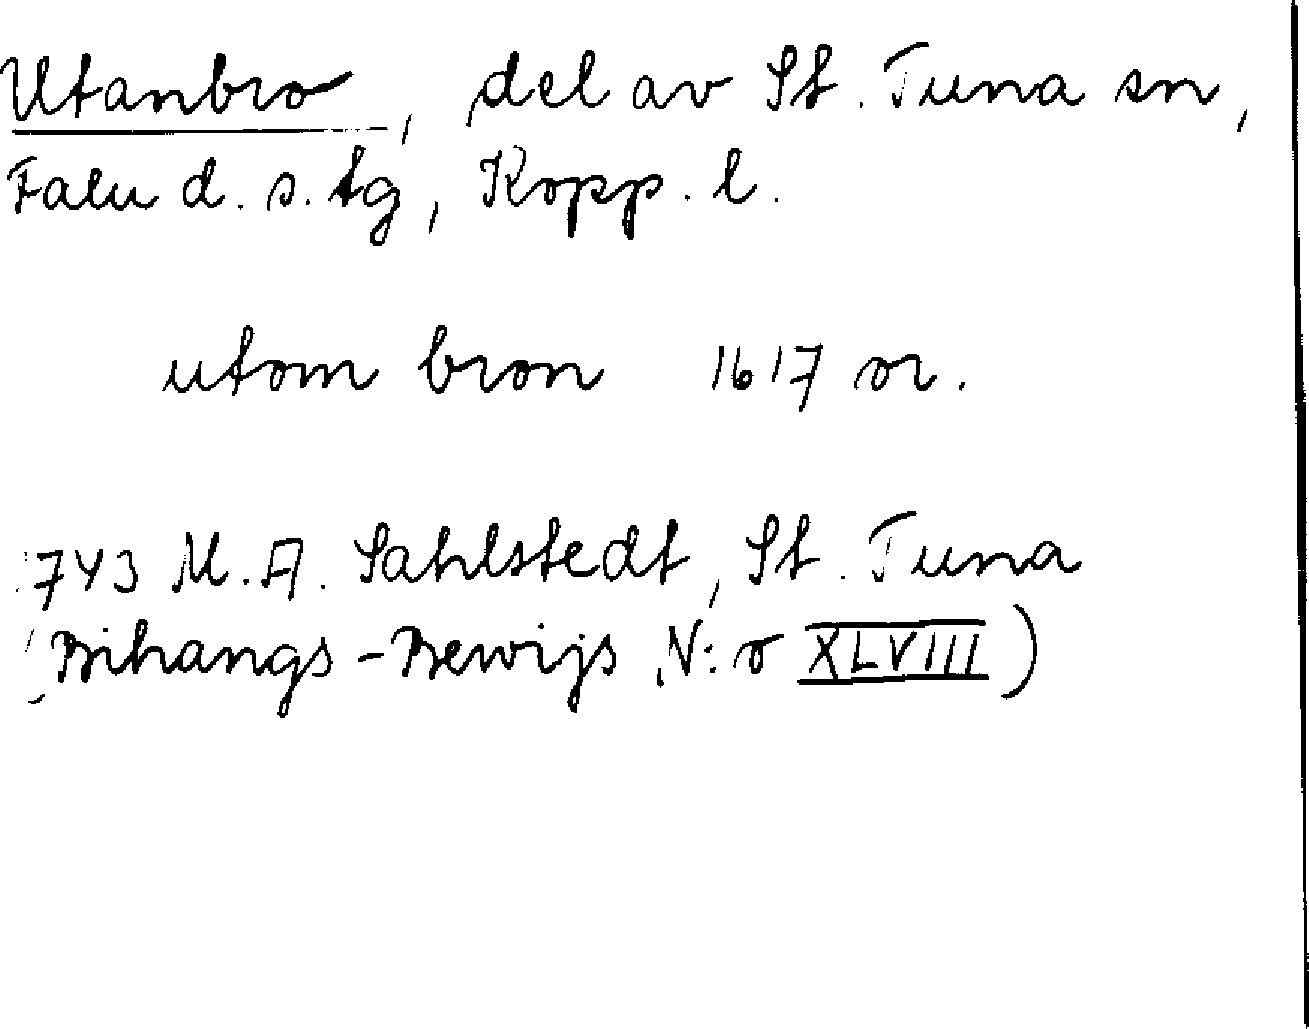 Utanbro, del av St. Tuna sn,
Falu d. s. tg, Kopp. l.
utom bron 1617 or.
1743 M. A. Sahlstedt, St. Tuna
(Bihangs-Bewijs N:o XLVIII)